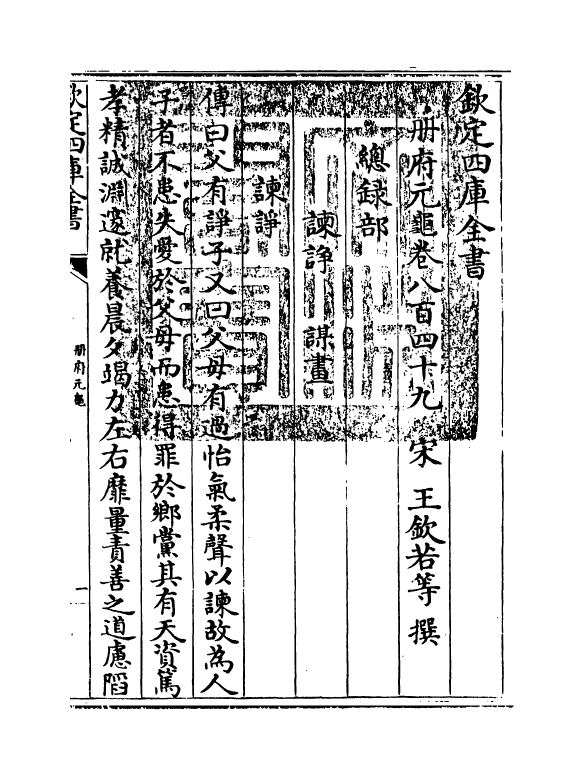 欽定四庫全書
册府元龜卷八百四十九　宋　王欽若等　撰
總録部
諫諍　謀畫
諫諍
傳曰父有諍子又曰父母有過怡氣柔聲以諫故為人
子者不患失愛於父母而患得罪於鄉黨其有天資篤
孝精誠淵邃就養晨夕竭力左右靡量責善之道慮陷
欽定四庫全書
册府元龜
一